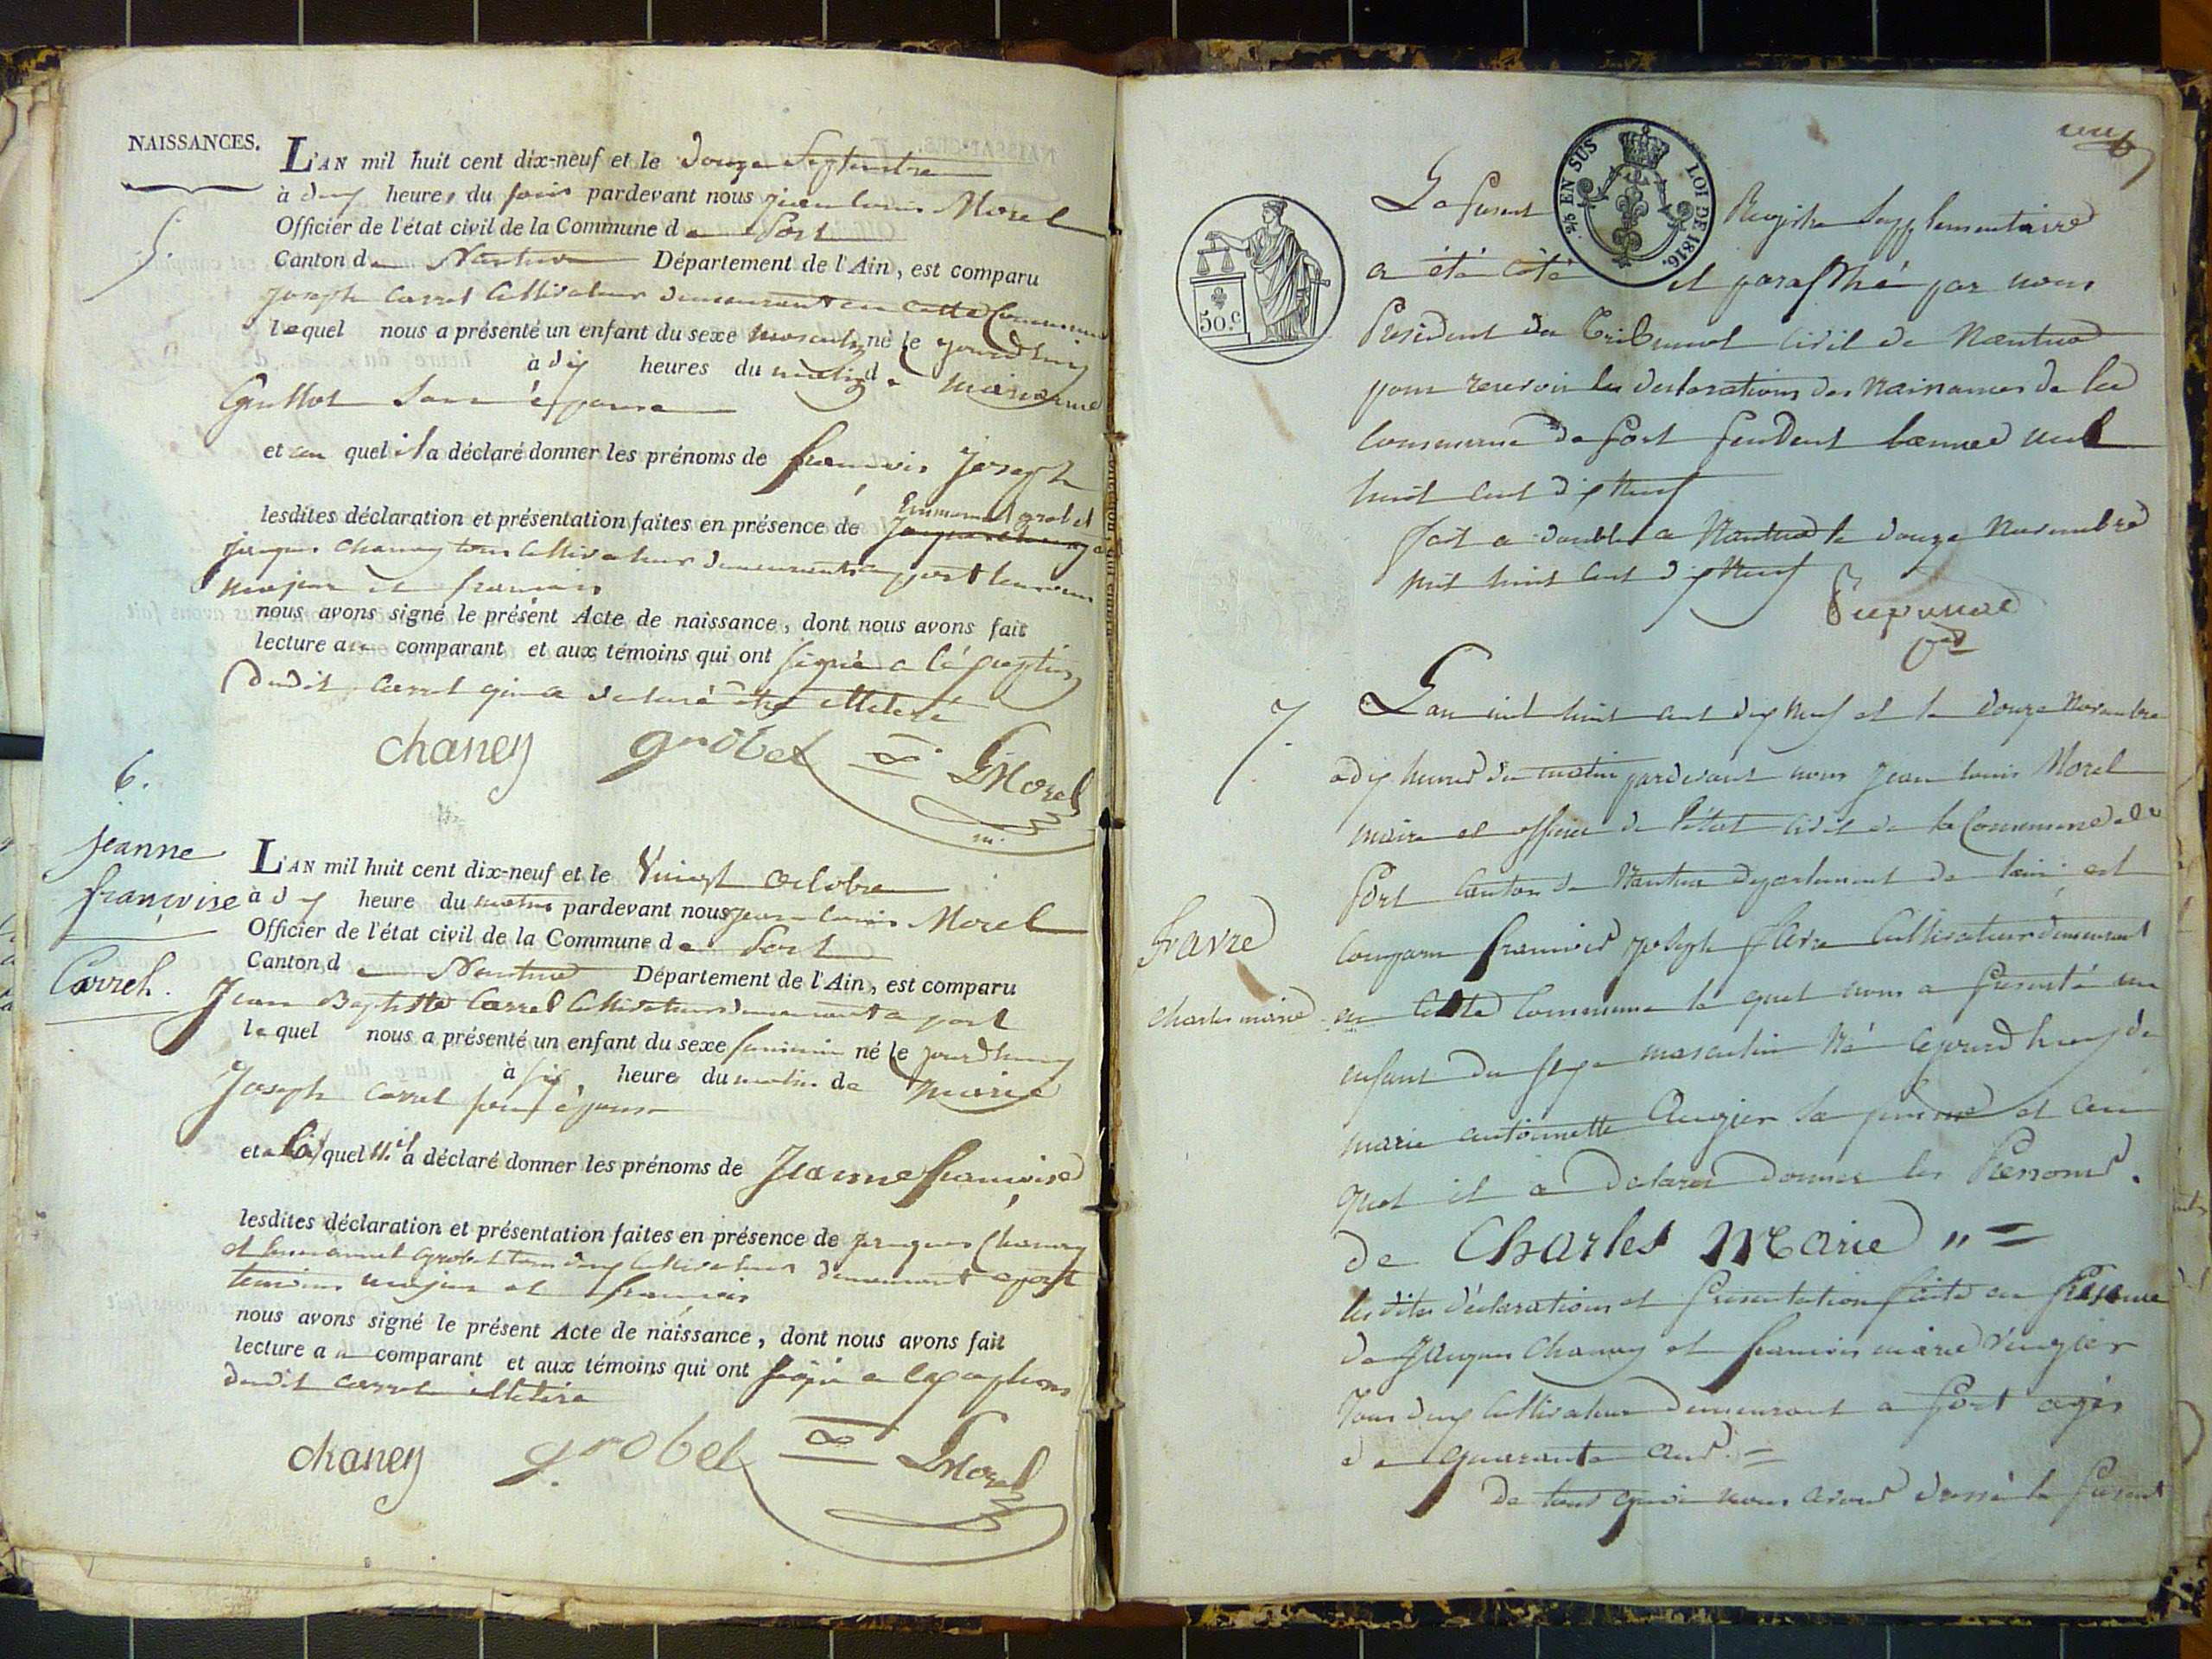 NAISSANCES.
5.
L'AN mil huit cent dix-neuf et le douze Septembre
à dix heures du soir pardevant nous jean louis Morel
Officier de l'état civil de la Commune de Port
Canton de Nantua Département de l'Ain, est comparu
joseph Carrel Cultivateur demeurant en cette Commune
lequel nous a présenté un enfant du sexe masculin né le jourdhuy
à dix heures du matin de marianne
Guillot son épouse
et au quel il a déclaré donner les prénoms de francois joseph
lesdites déclaration et présentation faites en présence de Emmanuel grobel et
jaques chaney tous Cultivateur demeurant a port temoins
majeur et francais
nous avons signé le présent Acte de naissance, dont nous avons fait
lecture au comparant et aux témoins qui ont signé a léxception
dudit Carrel qui a declaré etre illetéré
chaney grobel JLMorel
m.
6.
jeanne
francoise
Carrel.
L'AN mil huit cent dix-neuf et le Vingt octobre
à dix heure du matin pardevant nous jean louis Morel
Officier de l'état civil de la Commune de Port
Canton de Nantua Département de l'Ain, est comparu
Jean Baptiste Carrel Cultivateur demeurant a port
lequel nous a présenté un enfant du sexe feminin né le jourdhuy
à six heure du matin de marie
Joseph Carrel son épouse
et a la quel il a déclaré donner les prénoms de Jeanne francoise
lesdites déclaration et présentation faites en présence de jaques Chaney
et Emmanuel grobel tous deux Cultivateur demeurant a port
temoins majeur et francais
nous avons signé le présent Acte de naissance, dont nous avons fait
lecture au comparant et aux témoins qui ont signé a lexception
dudit Carrel illetéré
chaney grobel JLMorel
EN SUS LOI DE 1816.
50.c
Le present Registre supplementaire
a été coté et paraphé par nous
President du Tribunal Civil de Nantua
pour recevoir les declarations des Naissances de la
Commune de port pendant l'année mil
huit cent dix Neuf
fait a double a Nantua le douze Novembre
mil huit cent dix Neuf
7.
L'an mil huit cent dix neuf et le douze Novembre
a dix heures du matin pardevant nous Jean louis Morel
maire et officier de l'état Civil de la Commune de
Port Canton de Nantua departement de lain est
Comparu francois joseph favre Cultivateur demeurant
en cette Commune le quel nous a presenté un
enfant du sexe masculin Né cejourd huy de
marie antoinette Augier sa femme et au
quel il a declaré donner les Prenoms.
de Charles Marie "=
Favre
charles marie
lesdites déclaration et presentation faite en presence
de Jaques Chaney et francois marie
Tous deux Cultivateur demeurant a port agés
de quarante ans. =
de tout quoi nous avons dressé le present